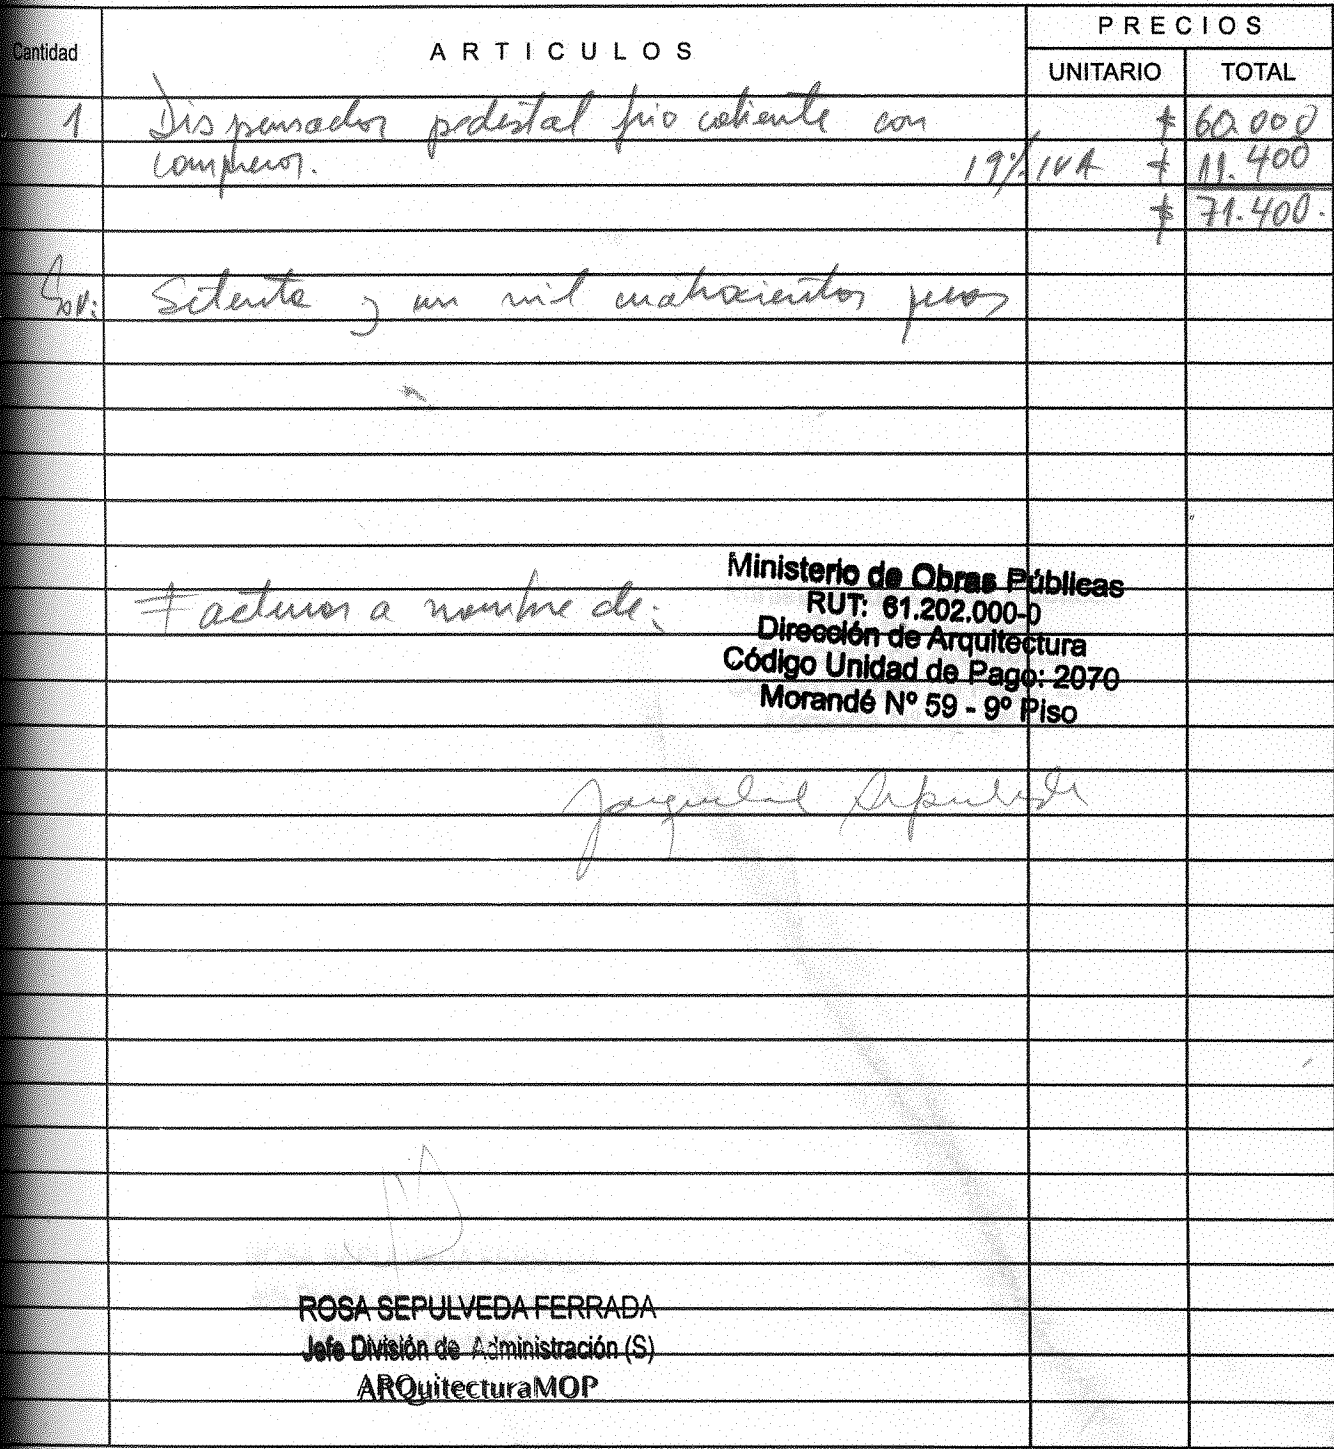 PRECIOS
Cantidad ARTICULOS UNITARIO TOTAL
1 Dispensador pedestal frio caliente con $ 60.000
compresor. 19% IVA $ 11.400
$ 71.400.
Son: Setenta y un mil cuatrocientos pesos
Facturar a nombre de:
Ministerio de Obras Públicas
RUT: 61.202.000-0
Dirección de Arquitectura
Código Unidad de Pago: 2070
Morandé Nº 59 - 9º Piso
Sepulveda
ROSA SEPULVEDA FERRADA
Jefe División de Administración (S)
ARQuitecturaMOP